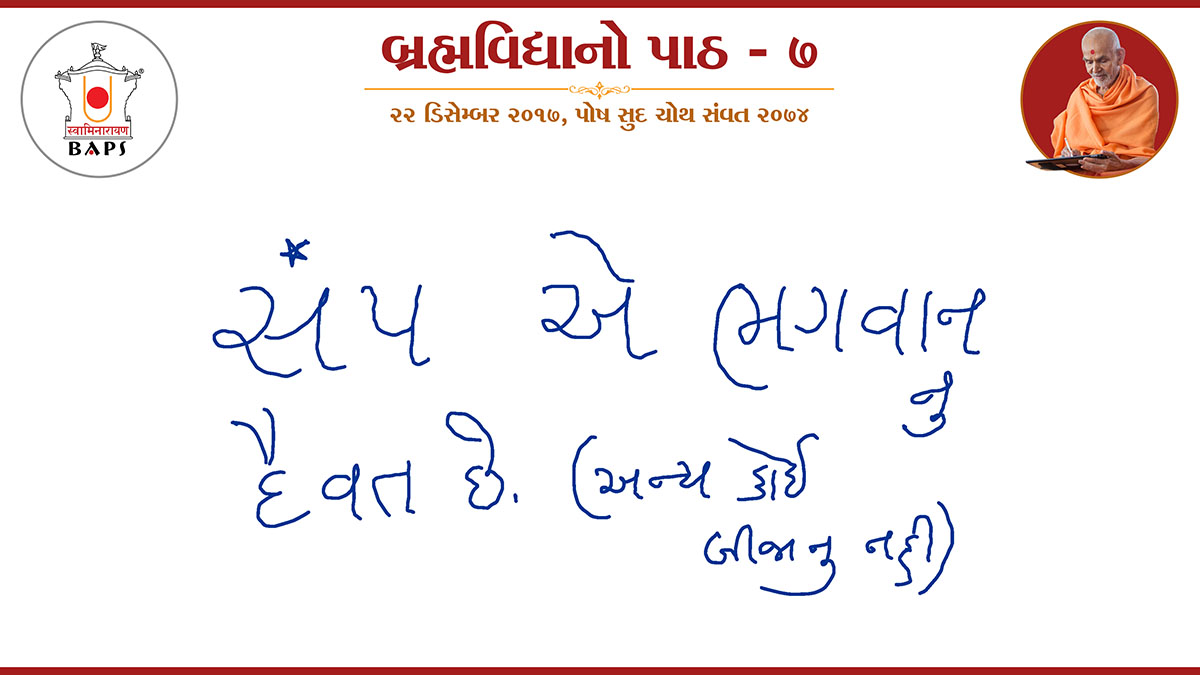 બ્રહ્મવિદ્યાનો પાઠ - ૭
૨૨ ડિસેમ્બર ૨૦૧૭, પોષ સુદ ચોથ સંવત ૨૦૭૪
स्वामिनारायण
BAPS
સંપ એ ભગવાન
નુ
દૈવત છે. (અન્ય કોઈ
બીજાનુ નહી)